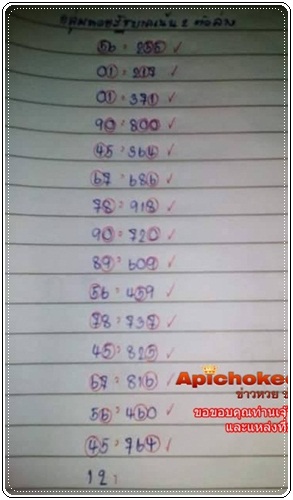 56 = 255 ✓
01 = 217 ✓
01 = 371 ✓
90 = 800 ✓
45 = 364 ✓
67 = 686 ✓
78 = 918 ✓
90 = 720 ✓
89 = 609 ✓
56 = 459 ✓
78 = 737 ✓
45 = 825 ✓
67 = 816
Apichoke
ข่าวหวย
56 = 460
ขอขอบคุณท่านเจ้
45 = 764 ✓
และแหล่งที่
12 =